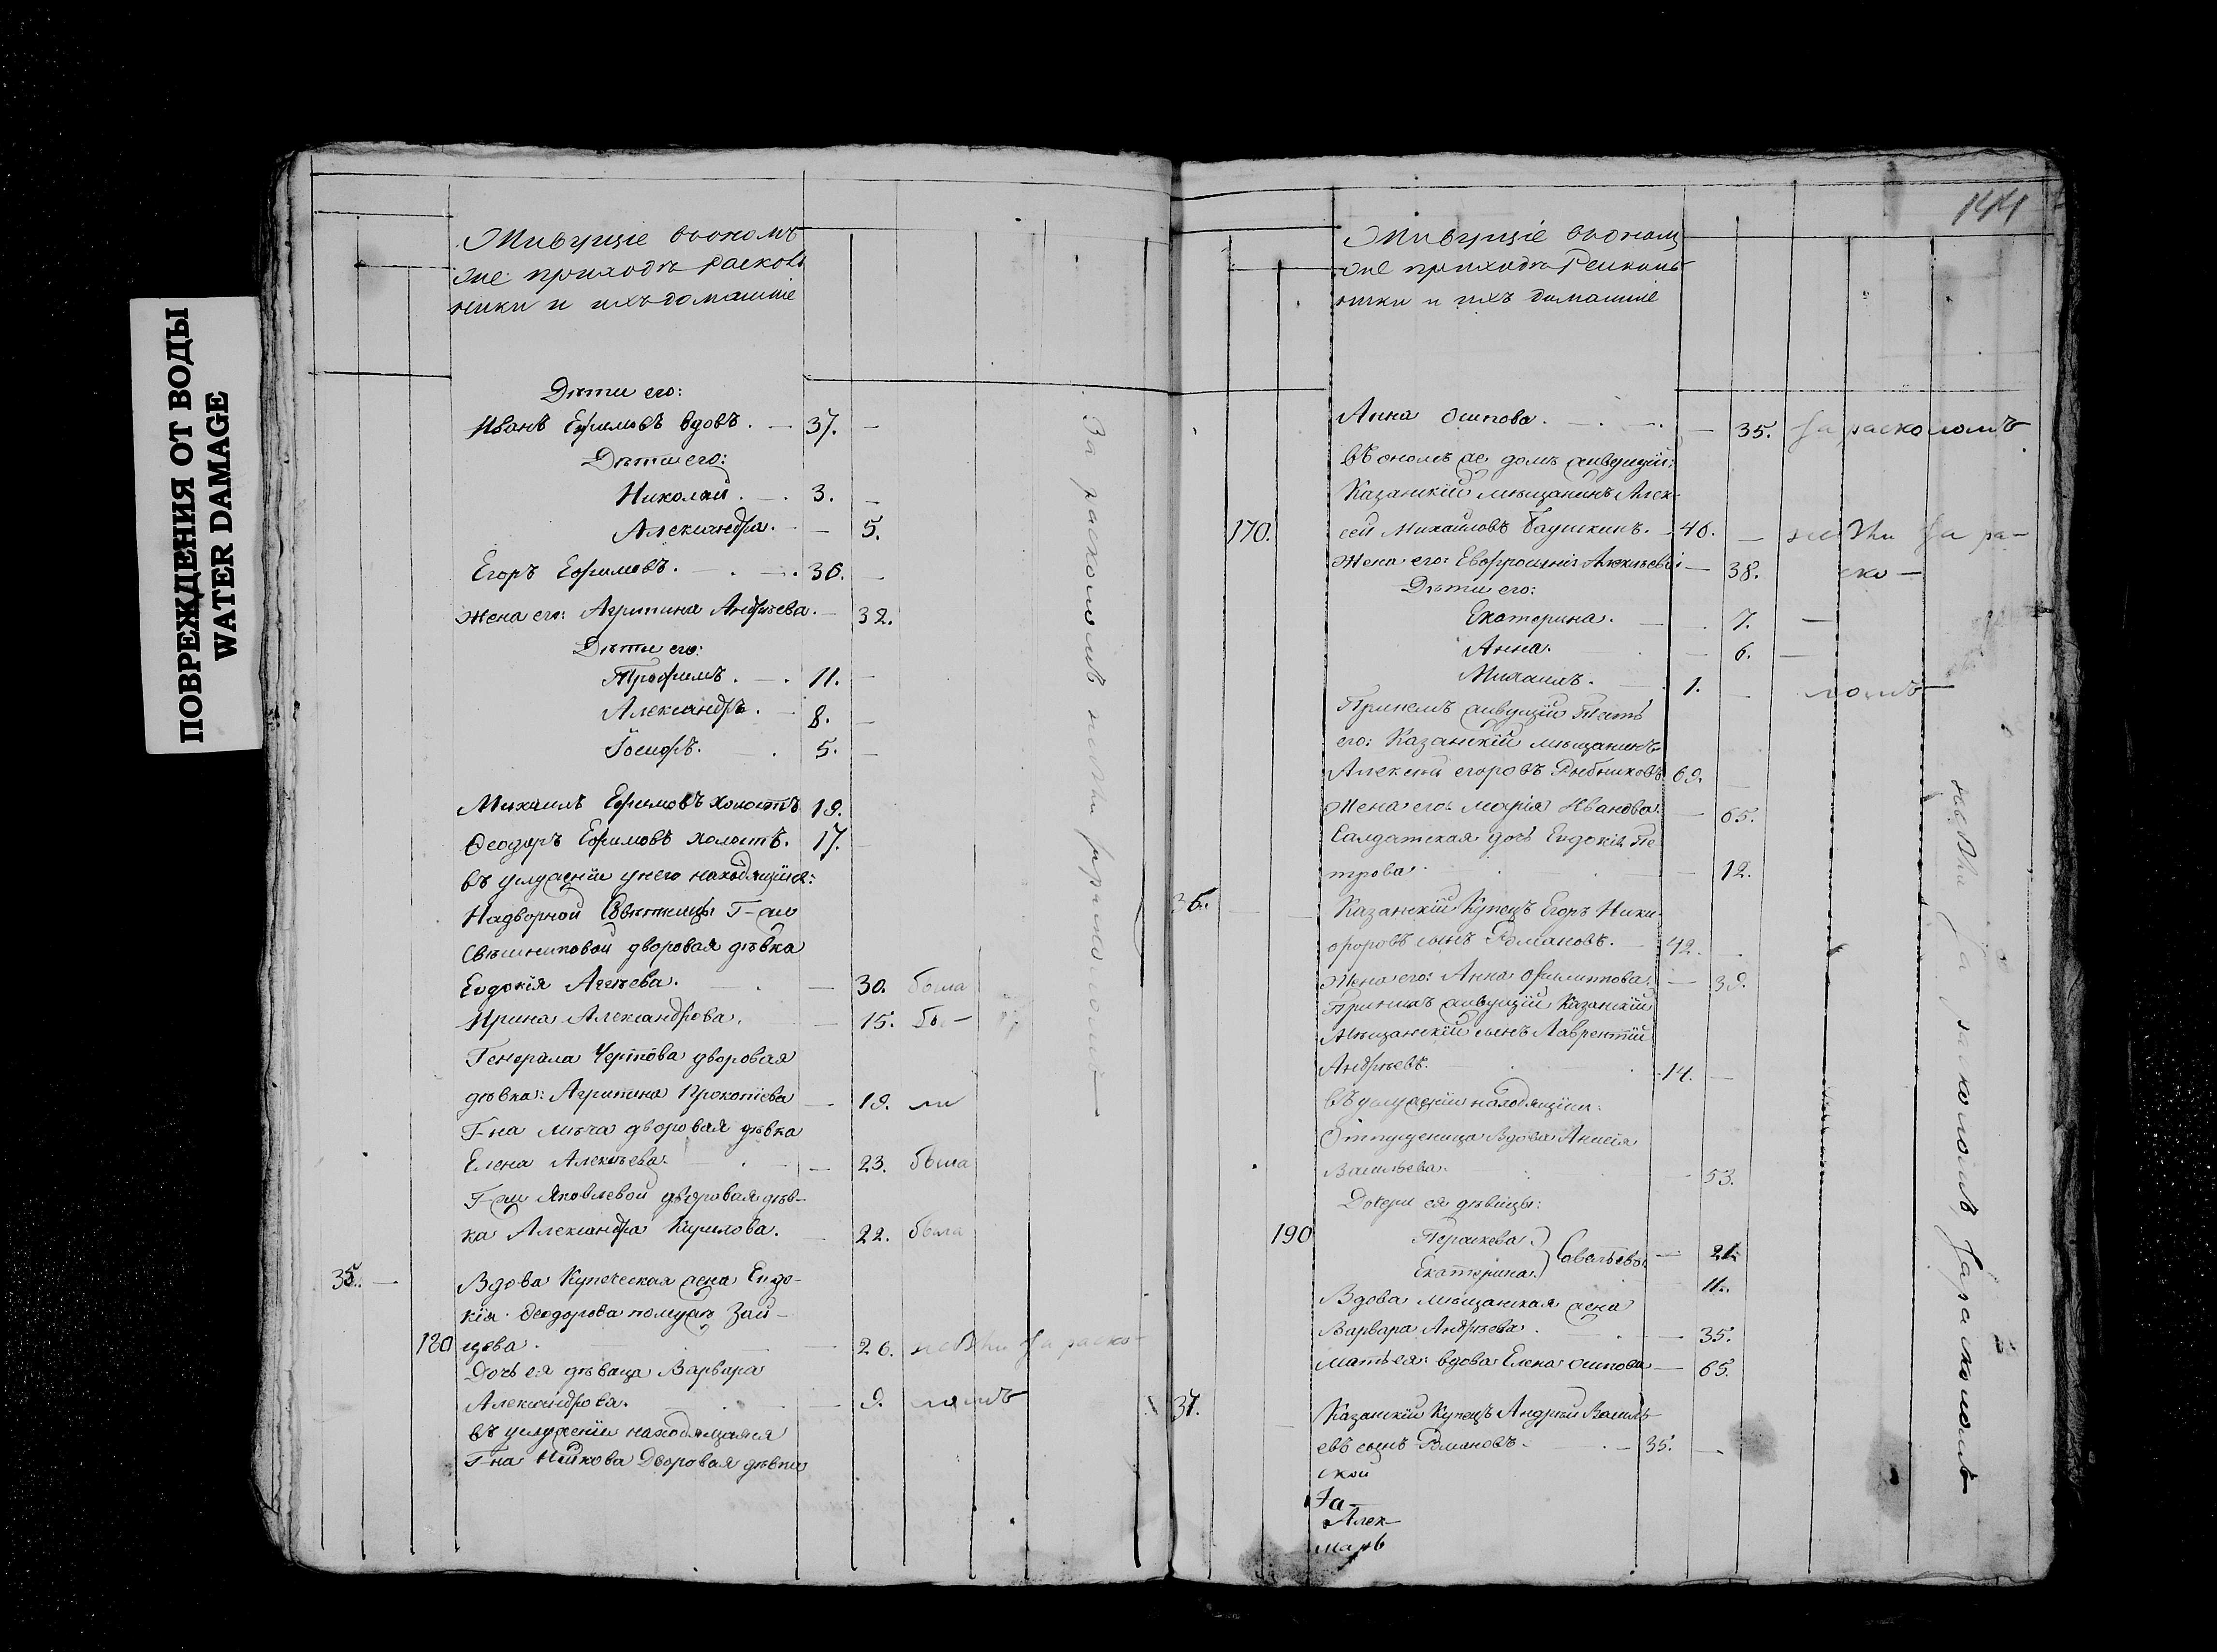 ПОВРЕЖДЕНИЯ ОТ ВОДЫ
WATER DAMAGE
Живущіе вономъ
же приходѣ расколь
ники и ихъ домашніе
Дѣти его:
Иванъ Ефимовъ вдовъ. — 37. —
Дѣти его:
Николай. — 3. —
Александра. — 5.
Егоръ Ефимовъ. — 36. —
Жена его: Агрипина Андрѣева. — 32.
Дѣти его:
Трофимъ. — 11. —
Александръ. — 8. —
Іосифъ. 5. —
Михаилъ Ефимовъ холостъ 19.
Ѳеодоръ Ефимовъ холостъ. 17.
въ услуженіи у него находящіися:
Надворной Совѣтницы Г-жи
дворовая дѣвка
Евдокія Агѣева. — 30. была
Ирина Александрова. — 15. бы —
Генерала Чертова дворовая
дѣвка: Агрипина Прокопіева — 19. ли
Г-на дворовая дѣвка
Елена Алексѣева. — 23. была
Г-жи Яковлевой дворовая дѣв-
ка Александра Кирилова. — 22. была
35. — Вдова Купеческая жена Евдо-
кія Ѳеодорова помужѣ Зай-
180 цова. — 26. за раско-
Дочь ея дѣвица Варвара
Александрова. — 9. ломъ
въ услуженіи находящаяся
Г-на дворовая дѣвка
За расколомъ
144
Живущіе вономъ
же приходѣ Расколь
ники и ихъ домашніе
Анна Осипова. — 35. за расколомъ
въ ономъ же домѣ живущій:
Казанскій мѣщанинъ Алек-
170. сей Михайловъ — 40. — за ра-
Жена его: Евфросинія Алексѣева — 38. ско —
Дѣти его:
Екатерина. — 7. —
Анна. — 6. —
Михаилъ. 1. — ломъ
При немъ живущій Тесть
его: Казанскій мѣщанинъ
Алексѣй Егоровъ Рыбниковъ 69. —
Жена его: Марія Иванова. — 65.
Салдатская дочь Евдокія Пе
трова. — 12.
36. — Казанскій Купецъ Егоръ Ники-
форовъ сынъ Романовъ. — 42. —
Жена его: Анна Филиппова. — 39.
При нихъ живущій Казанскій
Мѣщанскій сынъ Лаврентій
Андрѣевъ. 14. —
въ услуженіи находящіися:
Отпущеница Вдова Анисія
Васильева. — 53.
Дочери ея дѣвицы:
190 Параскева. — 21.
Екатерина. } Савельевы 11.
Вдова мѣщанская жена
Варвара Андрѣева. — 35.
Мать ея: вдова Елена Осипова — 65.
37. Казанскій Купецъ Андрей Василь-
евъ сынъ Романовъ. — 35. —
ской
За-
Алек-
марь
за расколомъ, за расколомъ